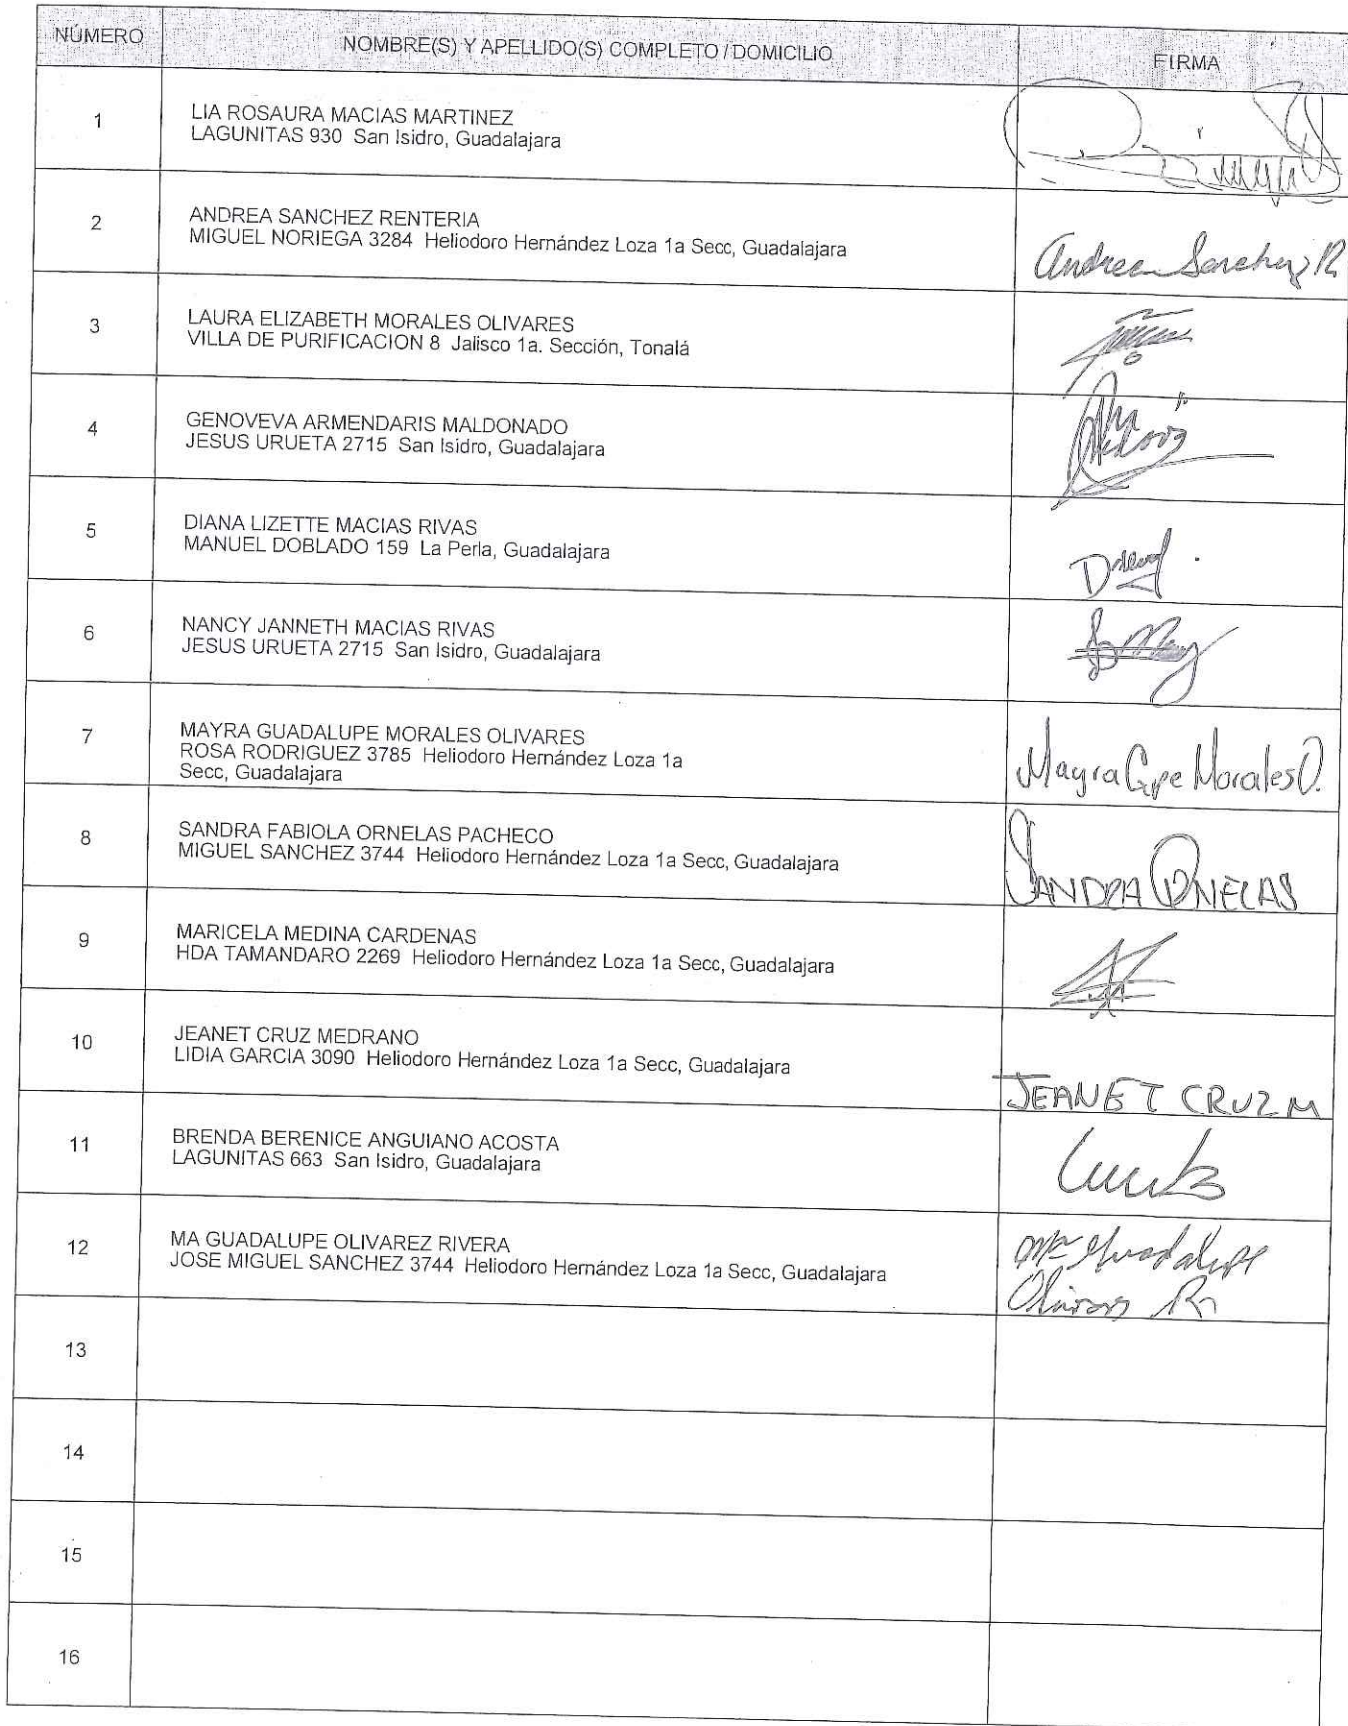 NÚMERO NOMBRE(S) Y APELLIDO(S) COMPLETO / DOMICILIO FIRMA
1 LIA ROSAURA MACIAS MARTINEZ
LAGUNITAS 930 San Isidro, Guadalajara
2 ANDREA SANCHEZ RENTERIA
MIGUEL NORIEGA 3284 Heliodoro Hernández Loza 1a Secc, Guadalajara
Andrea Sanchez R
3 LAURA ELIZABETH MORALES OLIVARES
VILLA DE PURIFICACION 8 Jalisco 1a. Sección, Tonalá
4 GENOVEVA ARMENDARIS MALDONADO
JESUS URUETA 2715 San Isidro, Guadalajara
5 DIANA LIZETTE MACIAS RIVAS
MANUEL DOBLADO 159 La Perla, Guadalajara
6 NANCY JANNETH MACIAS RIVAS
JESUS URUETA 2715 San Isidro, Guadalajara
7 MAYRA GUADALUPE MORALES OLIVARES
ROSA RODRIGUEZ 3785 Heliodoro Hernández Loza 1a
Secc, Guadalajara
Mayra Gpe Morales O.
8 SANDRA FABIOLA ORNELAS PACHECO
MIGUEL SANCHEZ 3744 Heliodoro Hernández Loza 1a Secc, Guadalajara
SANDRA ORNELAS
9 MARICELA MEDINA CARDENAS
HDA TAMANDARO 2269 Heliodoro Hernández Loza 1a Secc, Guadalajara
10 JEANET CRUZ MEDRANO
LIDIA GARCIA 3090 Heliodoro Hernández Loza 1a Secc, Guadalajara
JEANET CRUZ M
11 BRENDA BERENICE ANGUIANO ACOSTA
LAGUNITAS 663 San Isidro, Guadalajara
12 MA GUADALUPE OLIVAREZ RIVERA
JOSE MIGUEL SANCHEZ 3744 Heliodoro Hernández Loza 1a Secc, Guadalajara
Ma Guadalupe
13
14
15
16